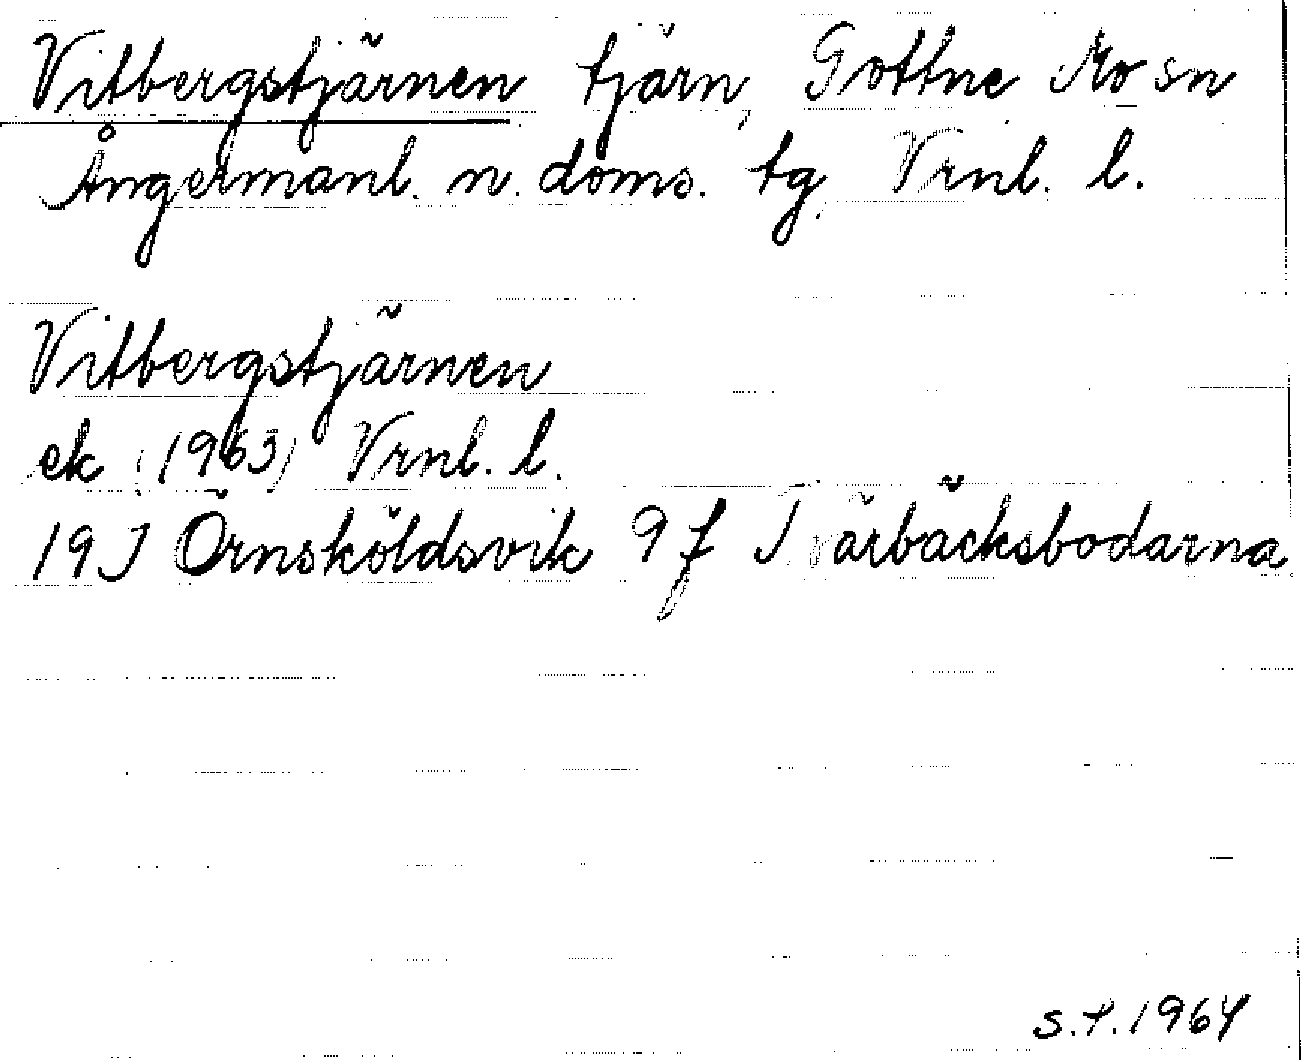 Vitbergstjärnen tjärn, Gottne Mo sn
Ångermanl. n. doms. tg. Vrnl. l.
Vitbergstjärnen
ek (1963) Vrnl. l.
19J Örnsköldsvik 9 f Tvärbäcksbodarna
s.t. 1964